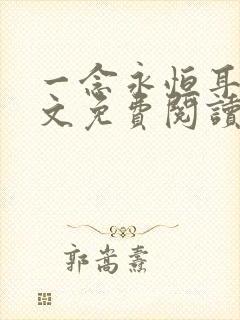 一念永恒耳
文免費閱讀
郭嵩燾